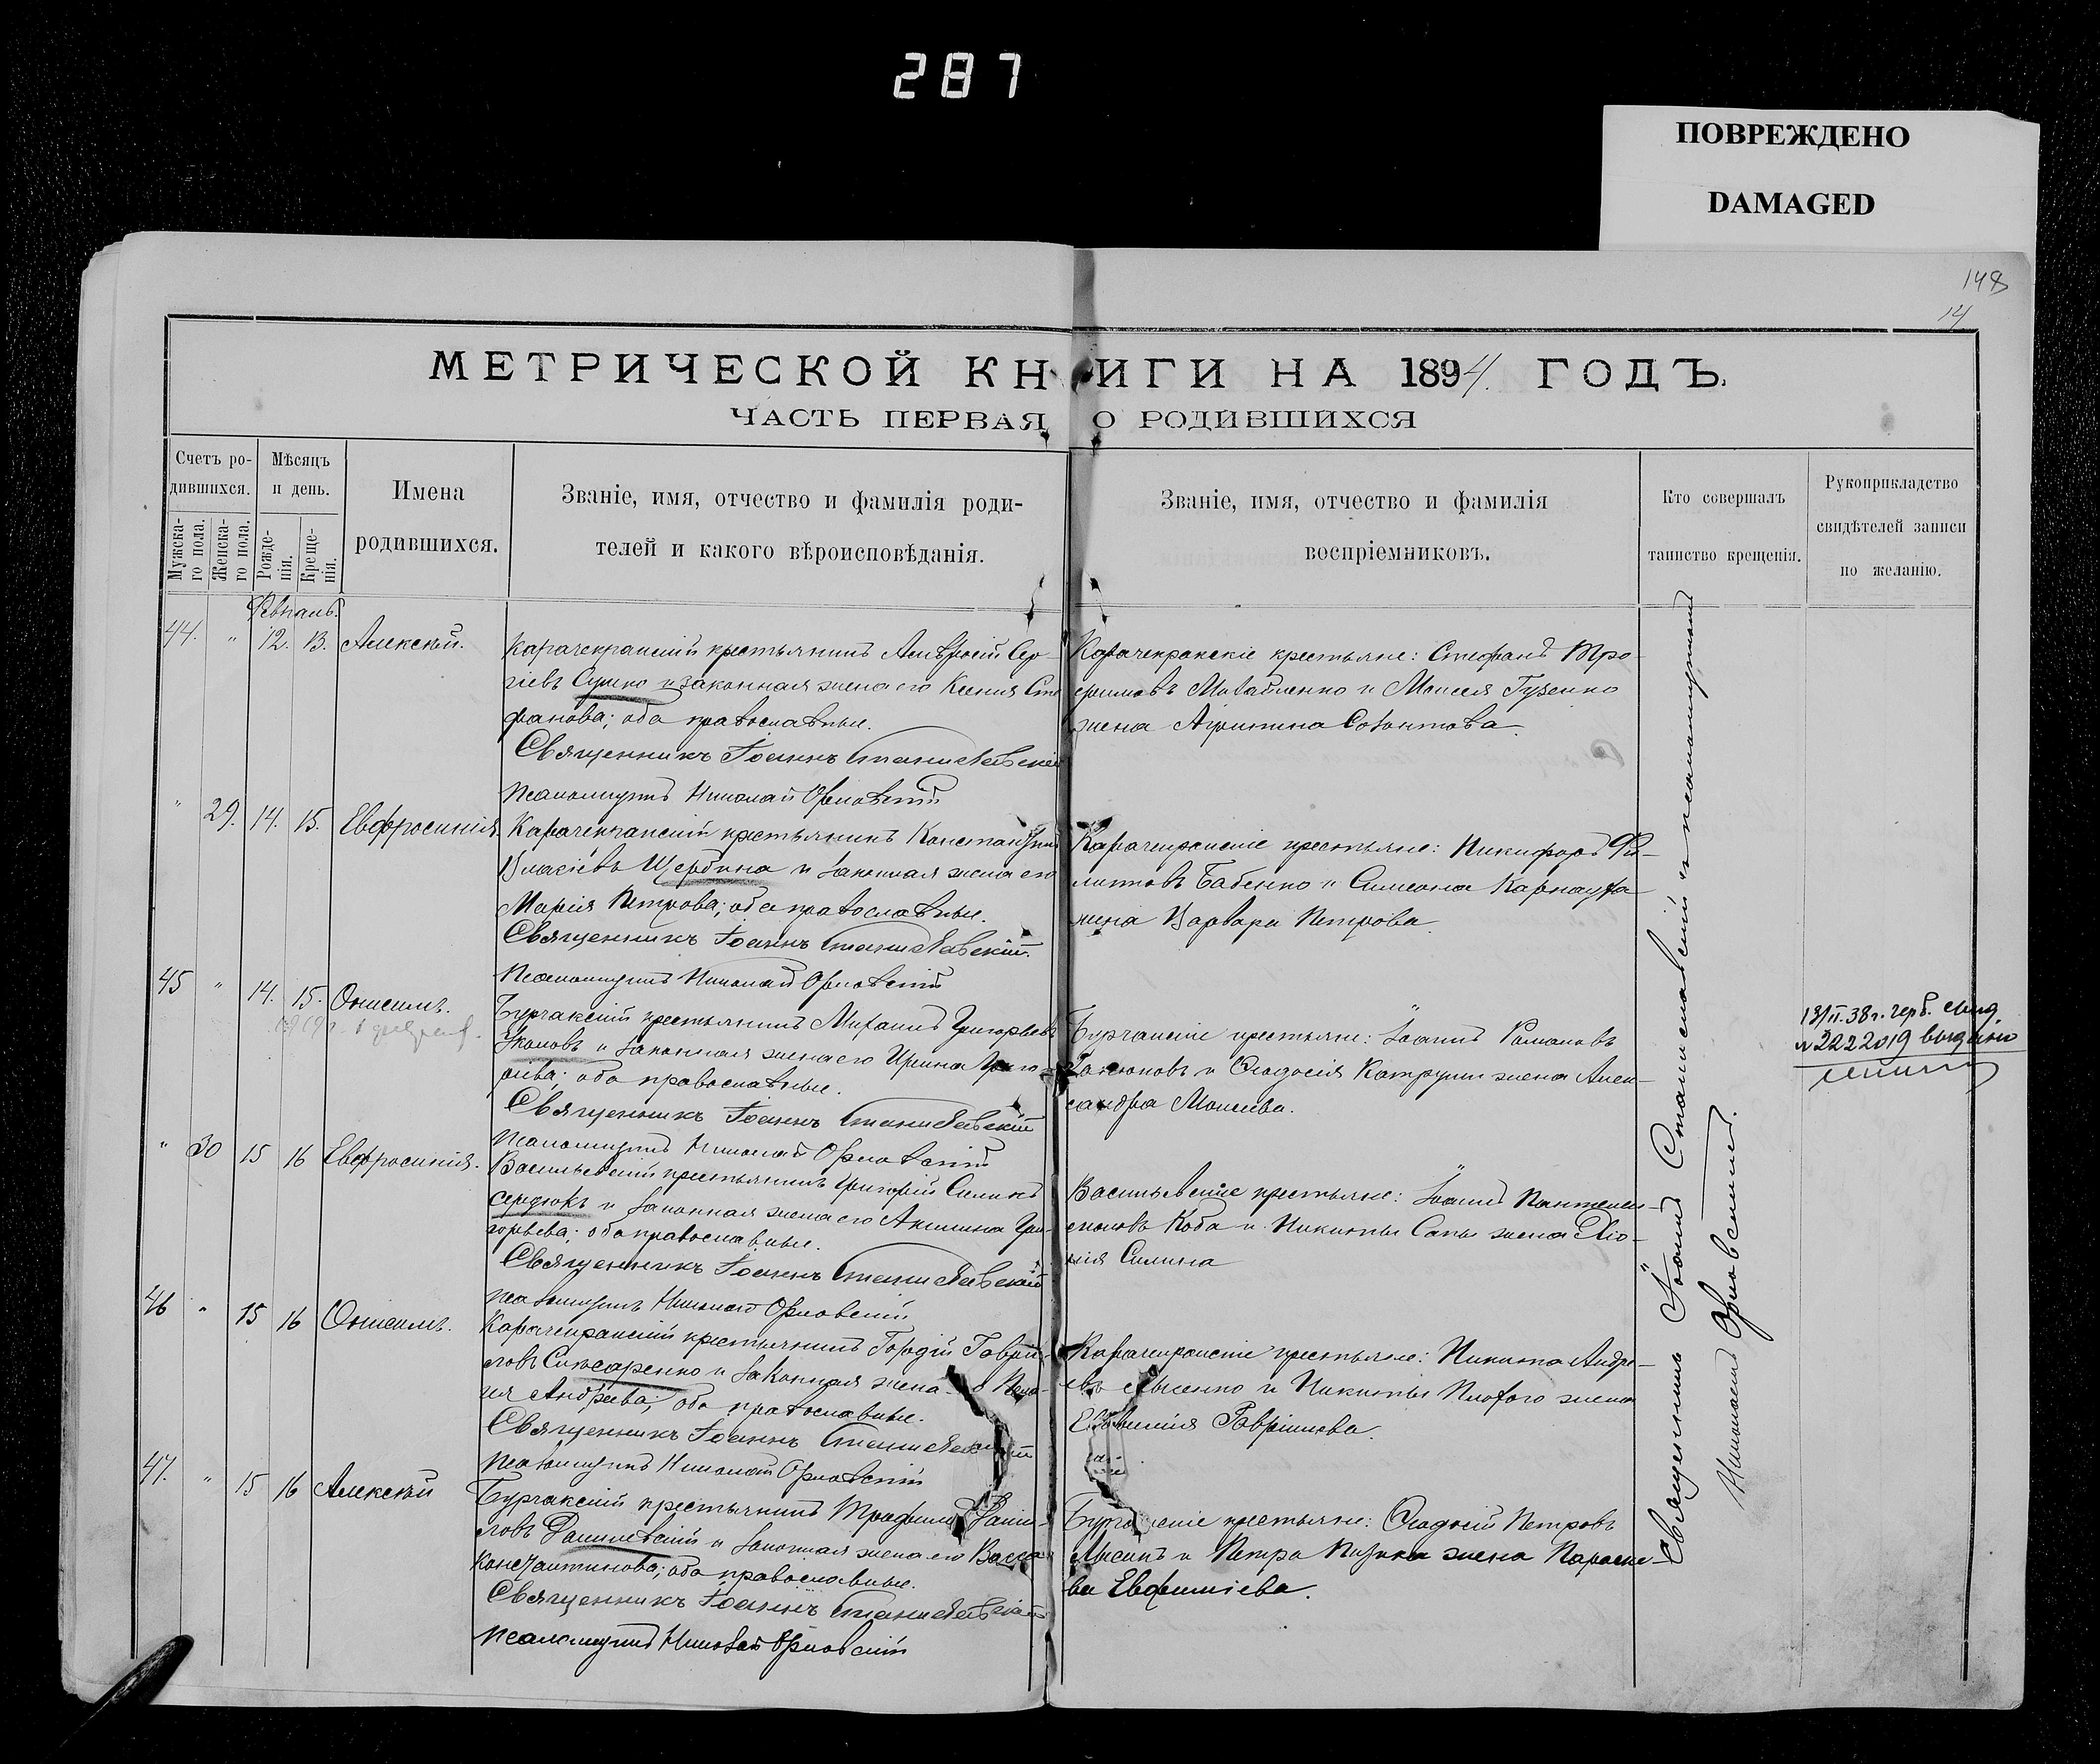 287
ПОВРЕЖДЕНО
DAMAGED
148
14
МЕТРИЧЕСКОЙ КНИГИ НА 1894. ГОДЪ.
ЧАСТЬ ПЕРВАЯ О РОДИВШИХСЯ
Счетъ ро-
дившихся.
Мужска-
го пола.
Женска-
го пола.
Мѣсяцъ
и день.
Рожде-
нія.
Креще-
нія.
Имена
родившихся.
Званіе, имя, отчество и фамилія роди-
телей и какого вѣроисповѣданія.
Званіе, имя, отчество и фамилія
воспріемниковъ.
Кто совершалъ
таинство крещенія.
Рукоприкладство
свидѣтелей записи
по желанію.
44. " 12. 13. Алексѣй.
крестьянинъ
Сушко и законная жена его Ксенія Сте
фанова; оба православные.
Священникъ Іоаннъ Станиславскій
Псаломщикъ Николай Орловскій
крестьяне: Стефанъ Тро-
фимовъ Михайленко и Моисея Гузенко
жена
" 29. 14. 15. Евфросинія.
крестьянинъ Константинъ
Власіевъ Щербина и законная жена его
Марія Петрова; оба православные.
Священникъ Іоаннъ Станиславскій.
Псаломщикъ Николай Орловскій
крестьяне: Никифоръ Фи-
липповъ Бабенко и Симеона Карнауха
жена Варвара Петрова.
45 " 14. 15. Онисимъ.
Бурчакскій крестьянинъ Михаилъ Григорьевъ
и законная жена его Ирина Григо-
ріева; оба православные.
Священникъ Іоаннъ Станиславскій
Псаломщикъ Николай Орловскій
Бурчакскіе крестьяне: Іоаннъ Романовъ
и Феодосія жена Алек-
сандра Моисеева.
13/II.38 г. герб.
№ 222019 выдано
" 30 15 16 Евфросинія.
Васильевскій крестьянинъ Григорій
Сердюкъ и законная жена его Акилина Гри-
горьева; оба православные.
Священникъ Іоаннъ Станиславскій
Псаломщикъ Николай Орловскій
Васильевскіе крестьяне: Іоаннъ Пантелеи-
моновъ Коба и Никиты Сапы жена
Силина
46 " 15 16 Онисимъ.
крестьянинъ Гордій Гаврии-
ловъ Слюсаренко и законная жена
Андреева; оба православные.
Священникъ Іоаннъ Станиславскій
Псаломщикъ Николай Орловскій
крестьяне: Никита Андре-
евъ Лысенко и Никиты Плохого жена
Евфимія Гавріилова.
47. " 15 16 Алексѣй
Бурчакскій крестьянинъ Трофимъ Даніи-
ловъ Данилевскій и законная жена его Васса
Константинова; оба православные.
Священникъ Іоаннъ Станиславскій
Псаломщикъ Николай Орловскій
крестьяне: Феодосій Петровъ
Лысакъ и Петра жена Параске-
ва Евфиміева.
Священникъ Іоаннъ Станиславскій и псаломщикъ
Николай Орловскій.